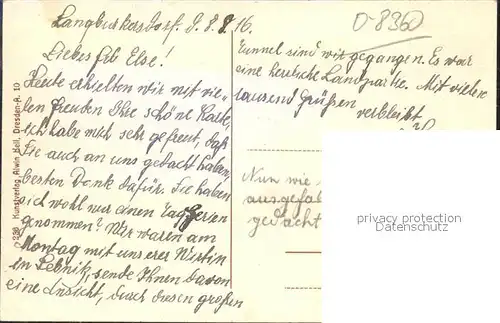 Langburkersdorf. d. 8.8.16.
Liebes Frl. Else!
Heute erhielten wir mit vie-
len Freuden Ihre schöne Karte,
ich habe mich sehr gefreut, daß
Sie auch an uns gedacht haben,
besten Dank dafür. Sie haben
sich wohl nur einen Tag Ferien
genommen? Wir waren am
Montag mit unserer Wirtin
in Sebnitz, sende Ihnen davon
eine Ansicht, durch diesen großen
Tunnel sind wir gegangen. Es war
eine herrliche Landpartie. Mit vielen
tausend Grüßen
verbleibt
Nun wie
ausgefal
gedacht
D-8360
Kunstverlag Alwin Keil, Dresden-A. 10
privacy protection
Datenschutz